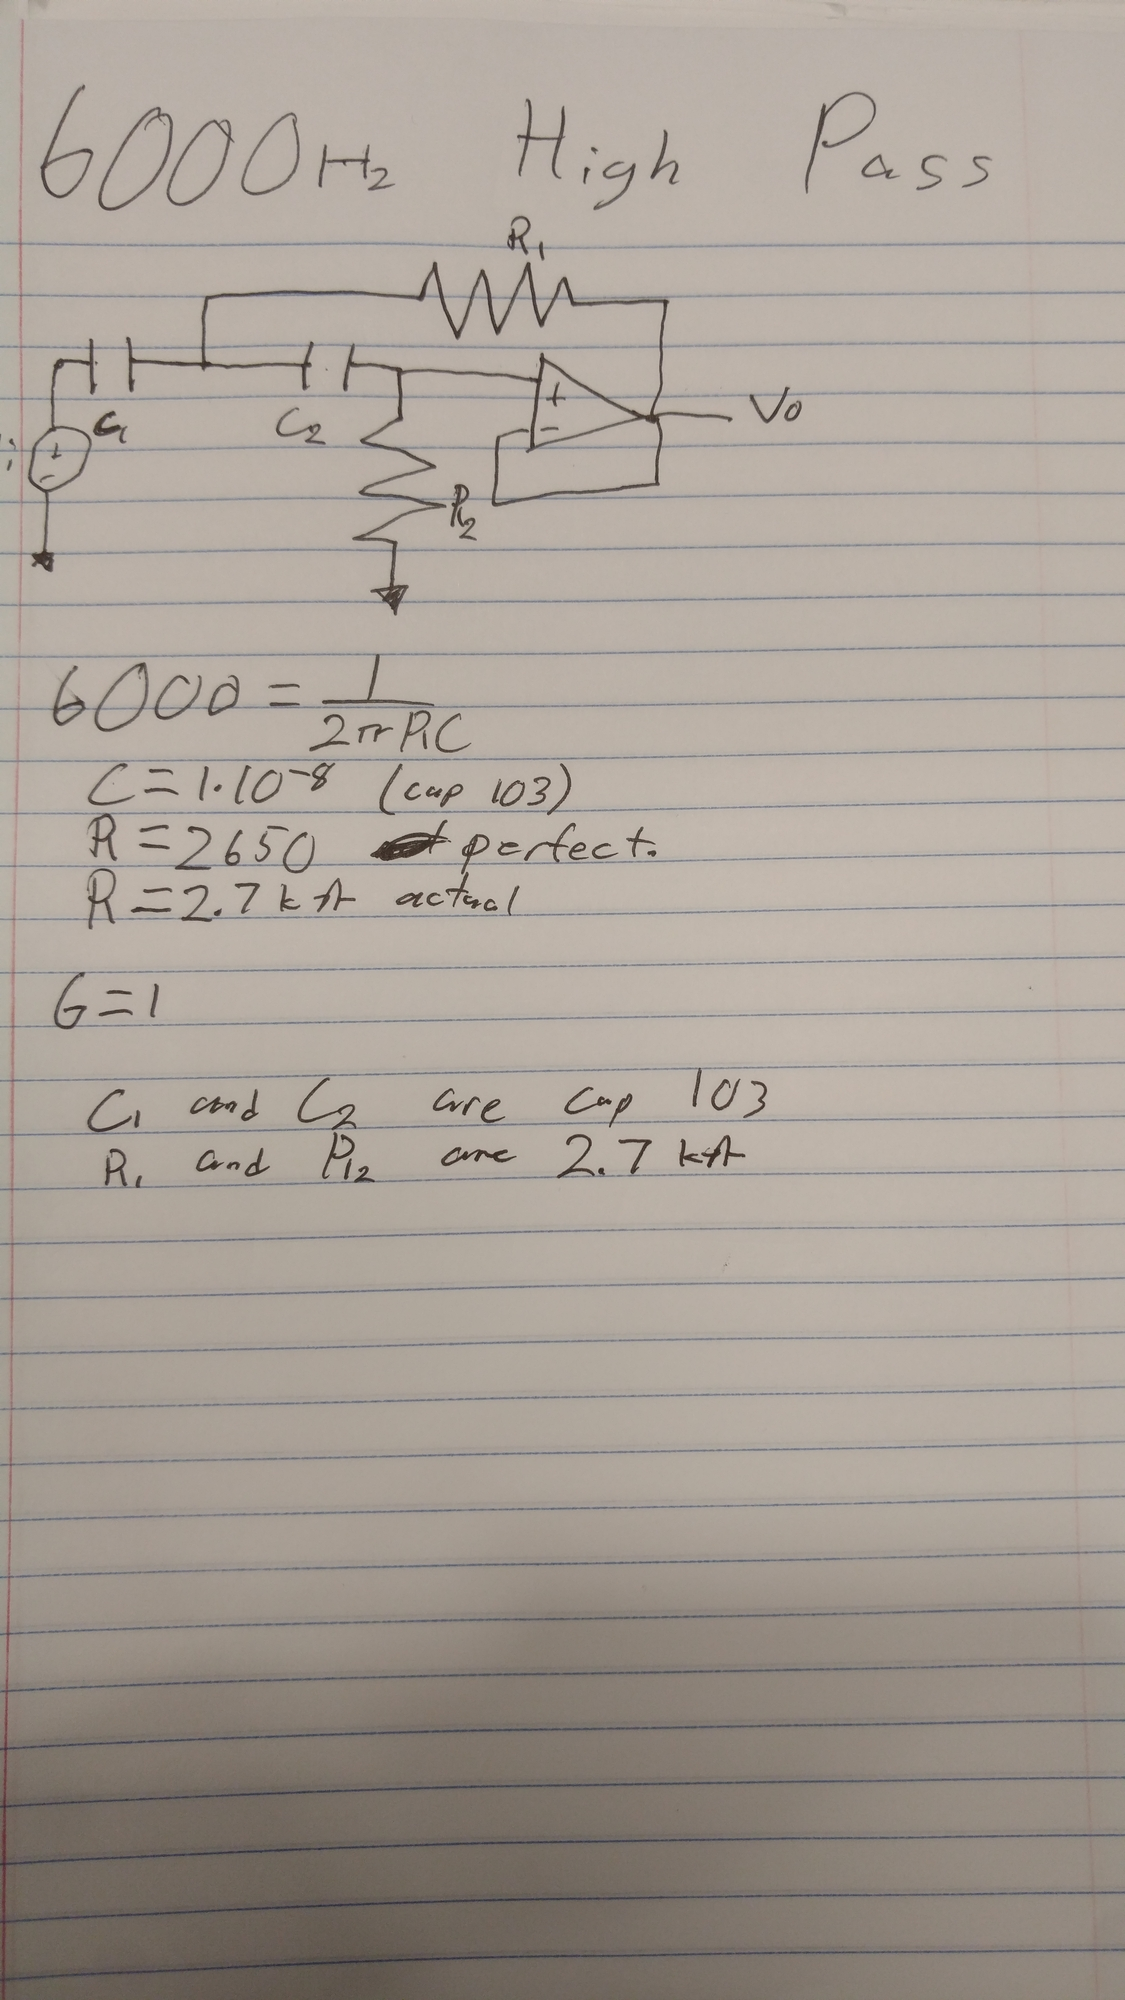 6000Hz High Pass
R₁
C₁
C₂
+
-
+
-
Vo
R₂
6000 = 1/(2πRC)
C = 1·10⁻⁸ (cap 103)
R = 2650 perfect.
R = 2.7 kΩ actual
G = 1
C₁ and C₂ are cap 103
R₁ and R₂ are 2.7 kΩ